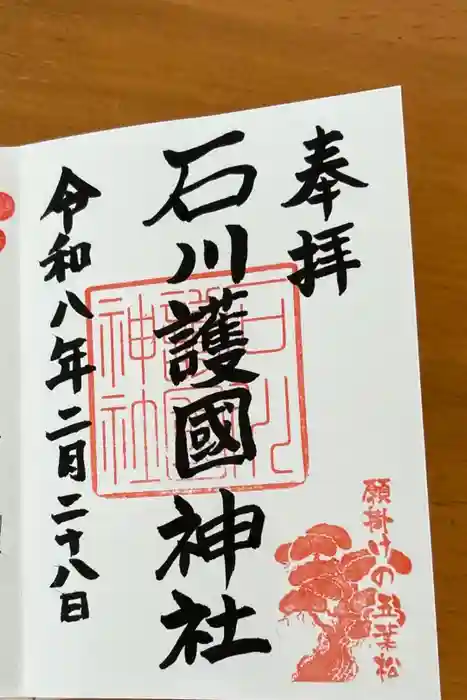 奉拝
石川護國神社
令和八年二月二十八日
石川護國神社
願掛けの五葉松